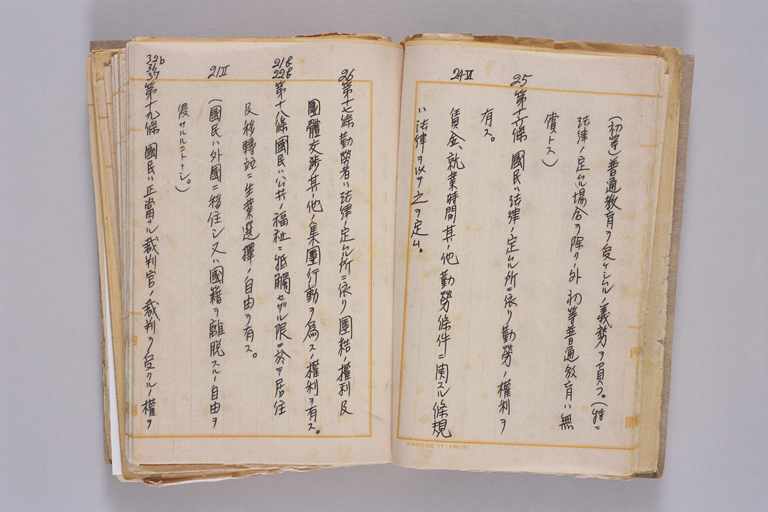 (初等)普通教育ヲ受ケシムルノ義務ヲ負フ。(特ニ
法律ノ定ムル場合ヲ除クノ外初等普通教育ハ無
償トス)
25
第十六條 國民ハ法律ノ定ムル所ニ依リ勤勞ノ權利ヲ
有ス。
24Ⅱ
賃金、就業時間其ノ他勤勞條件ニ関スル條規
ハ法律ヲ以テ之ヲ定ム。
26
第十七條 勤勞者ハ法律ノ定ムル所ニ依リ團結ノ權利及
團體交渉其ノ他ノ集團行動ヲ為スノ權利ヲ有ス。
21Ⅱ
第十八條 國民ハ公共ノ福祉ニ抵觸セザル限ニ於テ居住
及移轉竝ニ生業選擇ノ自由ヲ有ス。
(國民ハ外國ニ移住シ又ハ國籍ヲ離脱スルノ自由ヲ
侵サルルコトナシ。)
37
第十九條 國民ハ正當ナル裁判官ノ裁判ヲ受クルノ權ヲ